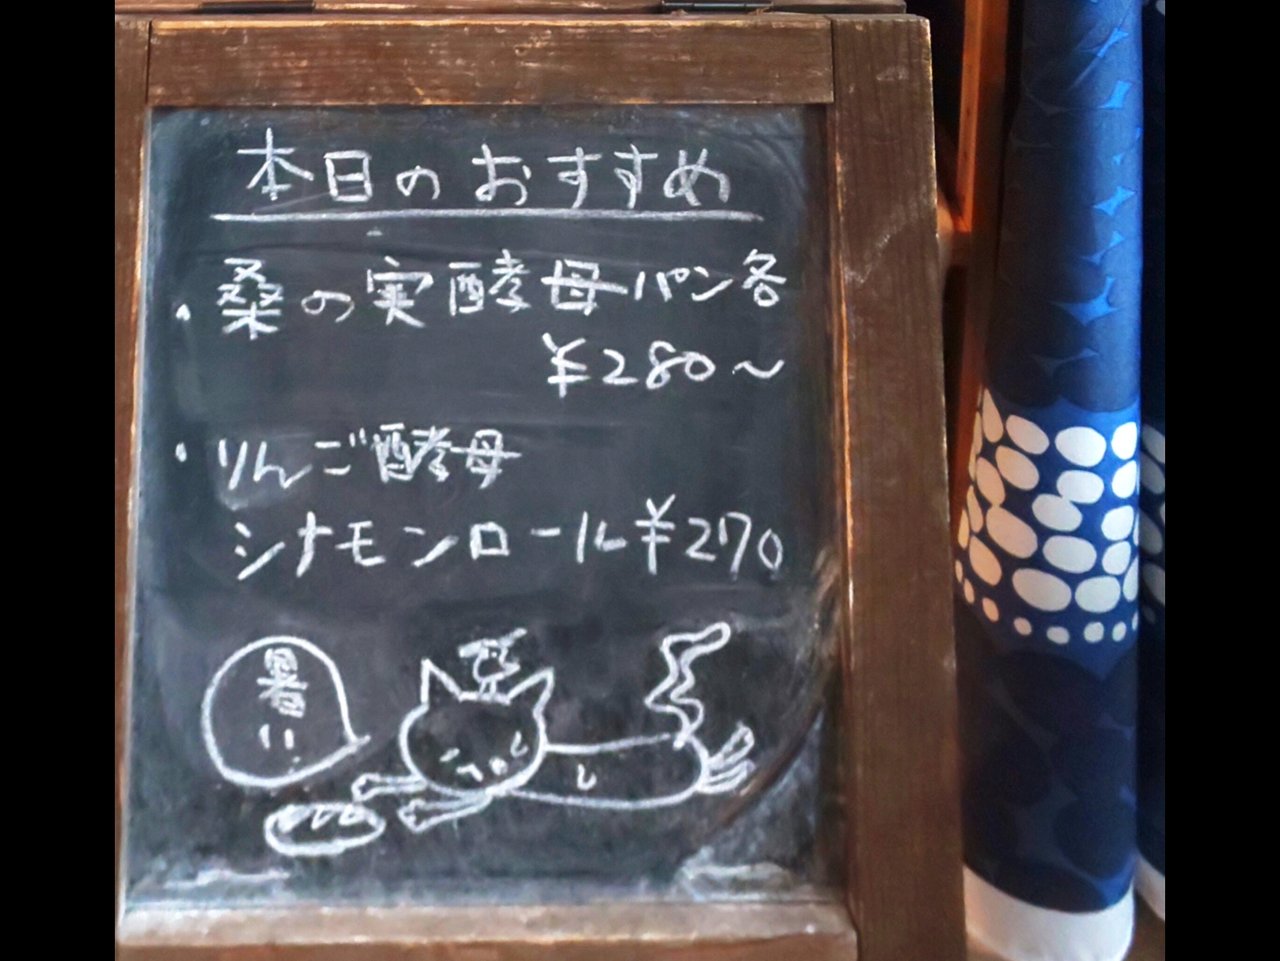 本日のおすすめ
・桑の実酵母パン各
¥280～
・りんご酵母
シナモンロール¥270
暑い